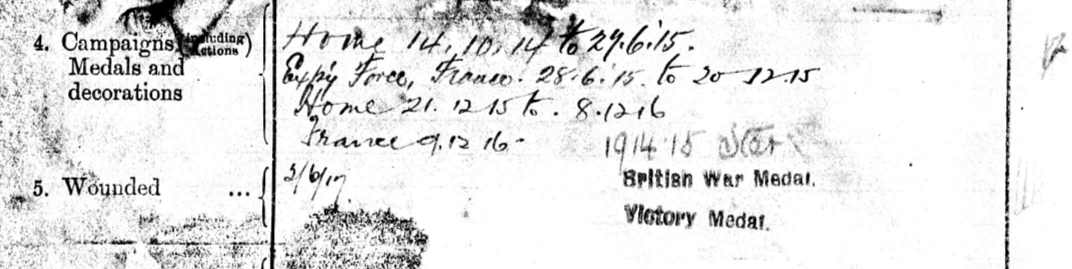 4. Campaigns, (including actions) Medals and decorations
Home 14.10.14 to 27.6.15.
Exp'y Force, France. 28.6.15. to 20 12 15
Home 21. 12 15 to. 8.12 16
France 9.12 16-
1914 15 Star
5. Wounded ...
3/6/17
British War Medal.
Victory Medal.